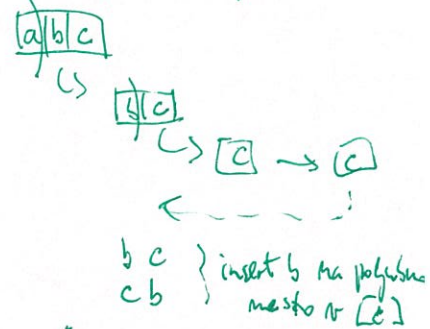 a b c
b c
c → c
b c
c b } insert b na poljubno
mesto v [c]